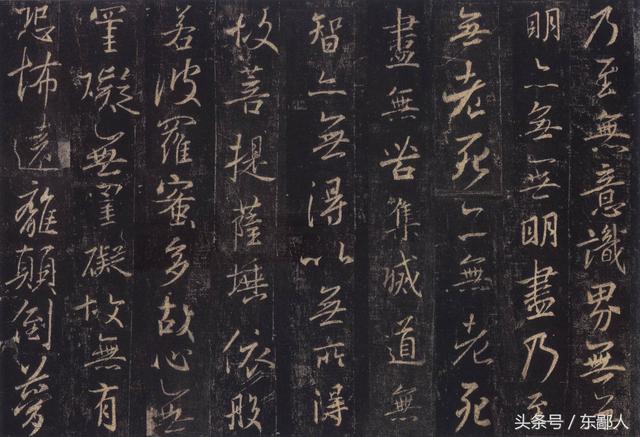 乃至無意識界無無
明亦無無明盡乃至
無老死亦無老死
盡無苦集滅道無
智亦無得以無所得
故菩提薩埵依般
若波羅蜜多故心無
罣礙無罣礙故無有
恐怖遠離顛倒夢
头条号 / 东鄙人